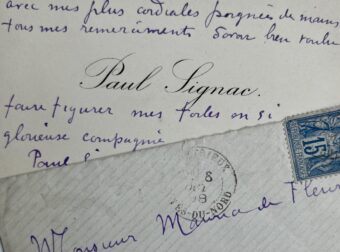 avec mes plus cordiales poignées de mains
tous mes remerciments d'avoir bien voulu
Paul Signac.
faire figurer mes toiles en si
glorieuse compagnie
Paul S
15
DU-NORD
Monsieur Maurice de Fleur